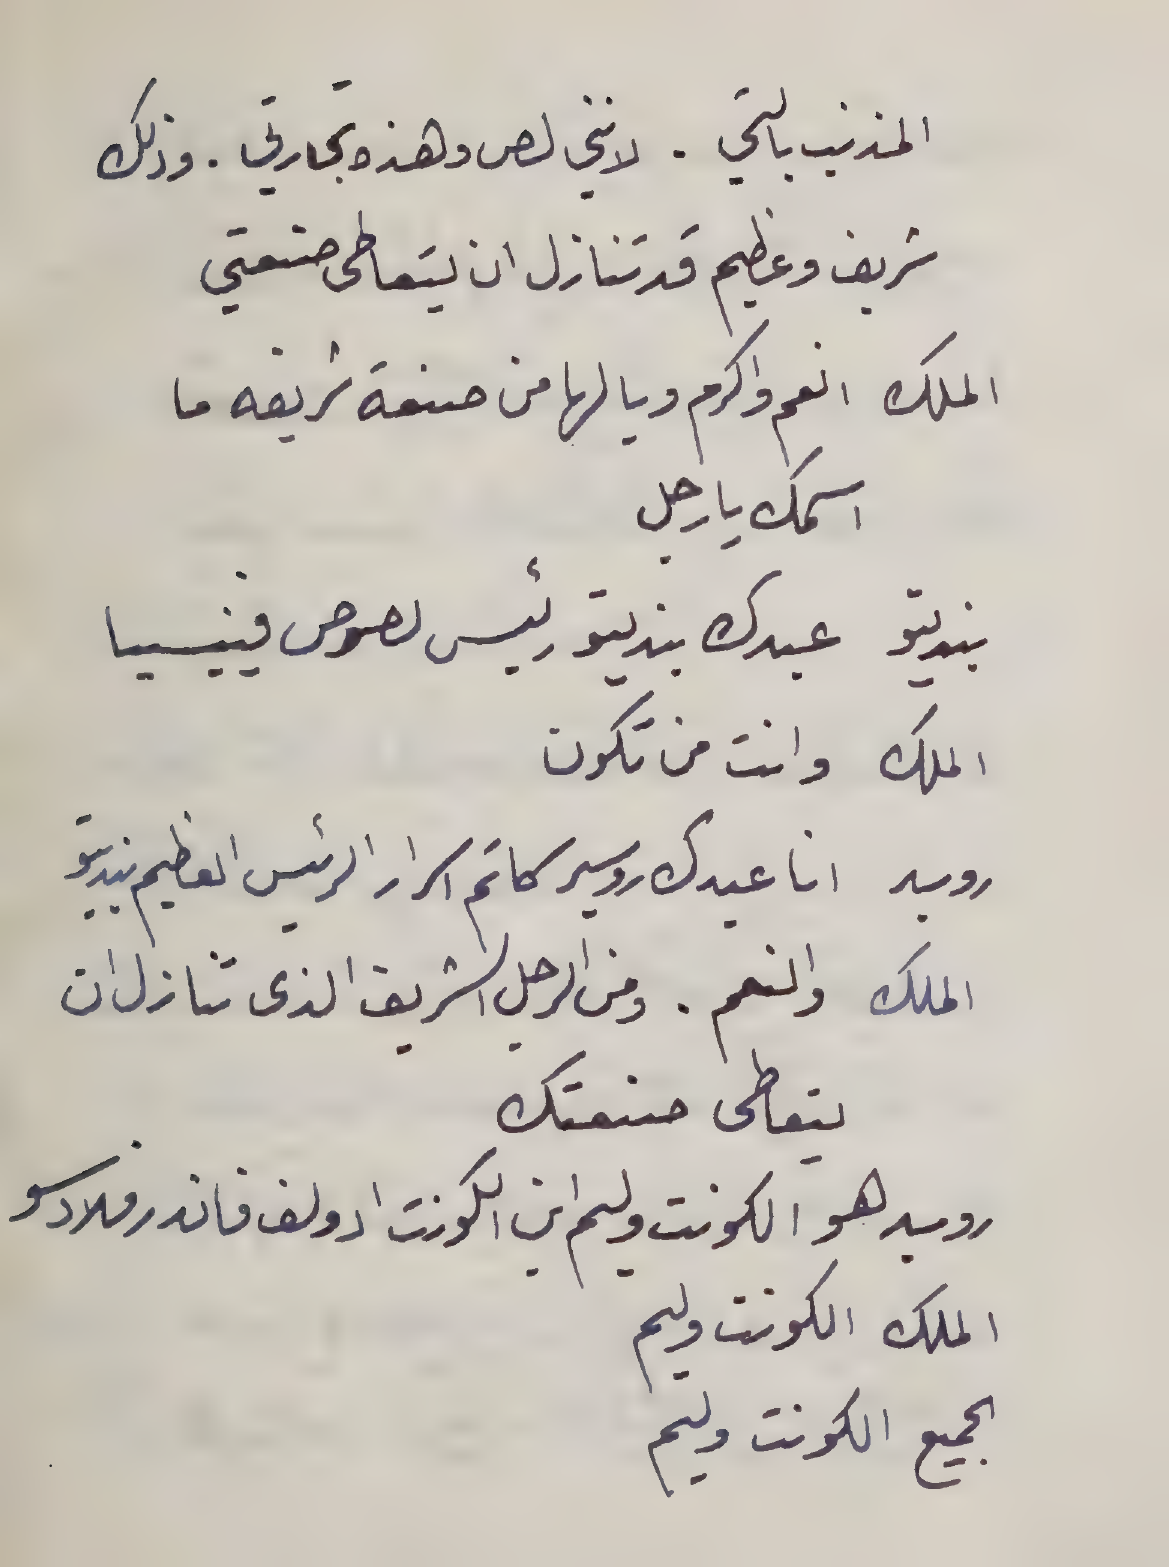 المذنب بالتي . لانني لص وهذه تجارتي . وذلك
شريف وعظيم قد تنازل ان يتعاطى صنعتي
الملك انعم واكرم ويا لها من صنعة شريفه ما
اسمك يا رجل
بنديتو عبدك بنديتو رئيس لصوص فينيسيا
الملك وانت من تكون
روبير انا عبدك روبير كاتم اسرار الرئيس العظيم بنديتو
الملك والنعم . ومن الرجل الشريف الذى تنازل ان
يتعاطى صنعتك
روبير هو الكونت وليم ابن الكونت ادولف فاندر
الملك الكونت وليم
الجميع الكونت وليم